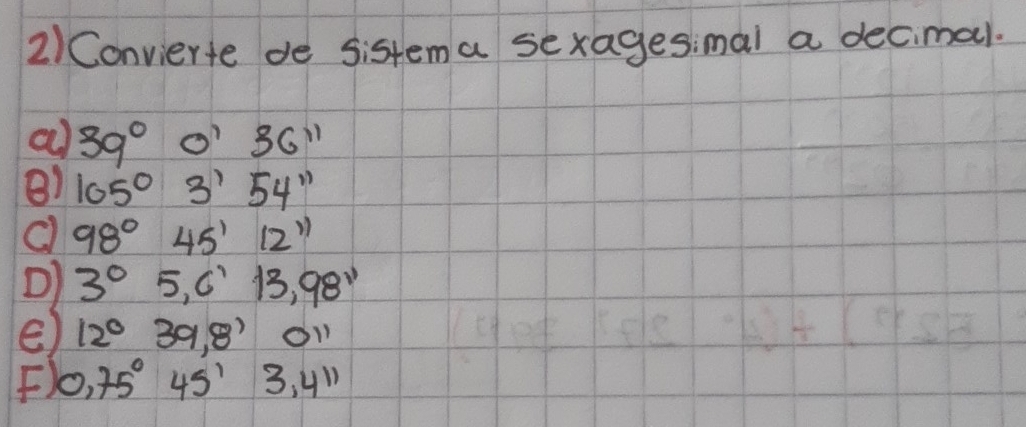 2) Convierte de sistema sexagesimal a decimal.
a) 39° 0' 36"
B) 105° 3' 54"
C) 98° 45' 12"
D) 3° 5,6' 13,98"
E) 12° 39,8' 0"
F) 0,75° 45' 3,4"